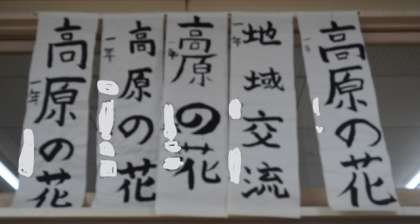 高原の花
一年
高原の花
一年
高原の花
一年
地域交流
一年
高原の花
一年